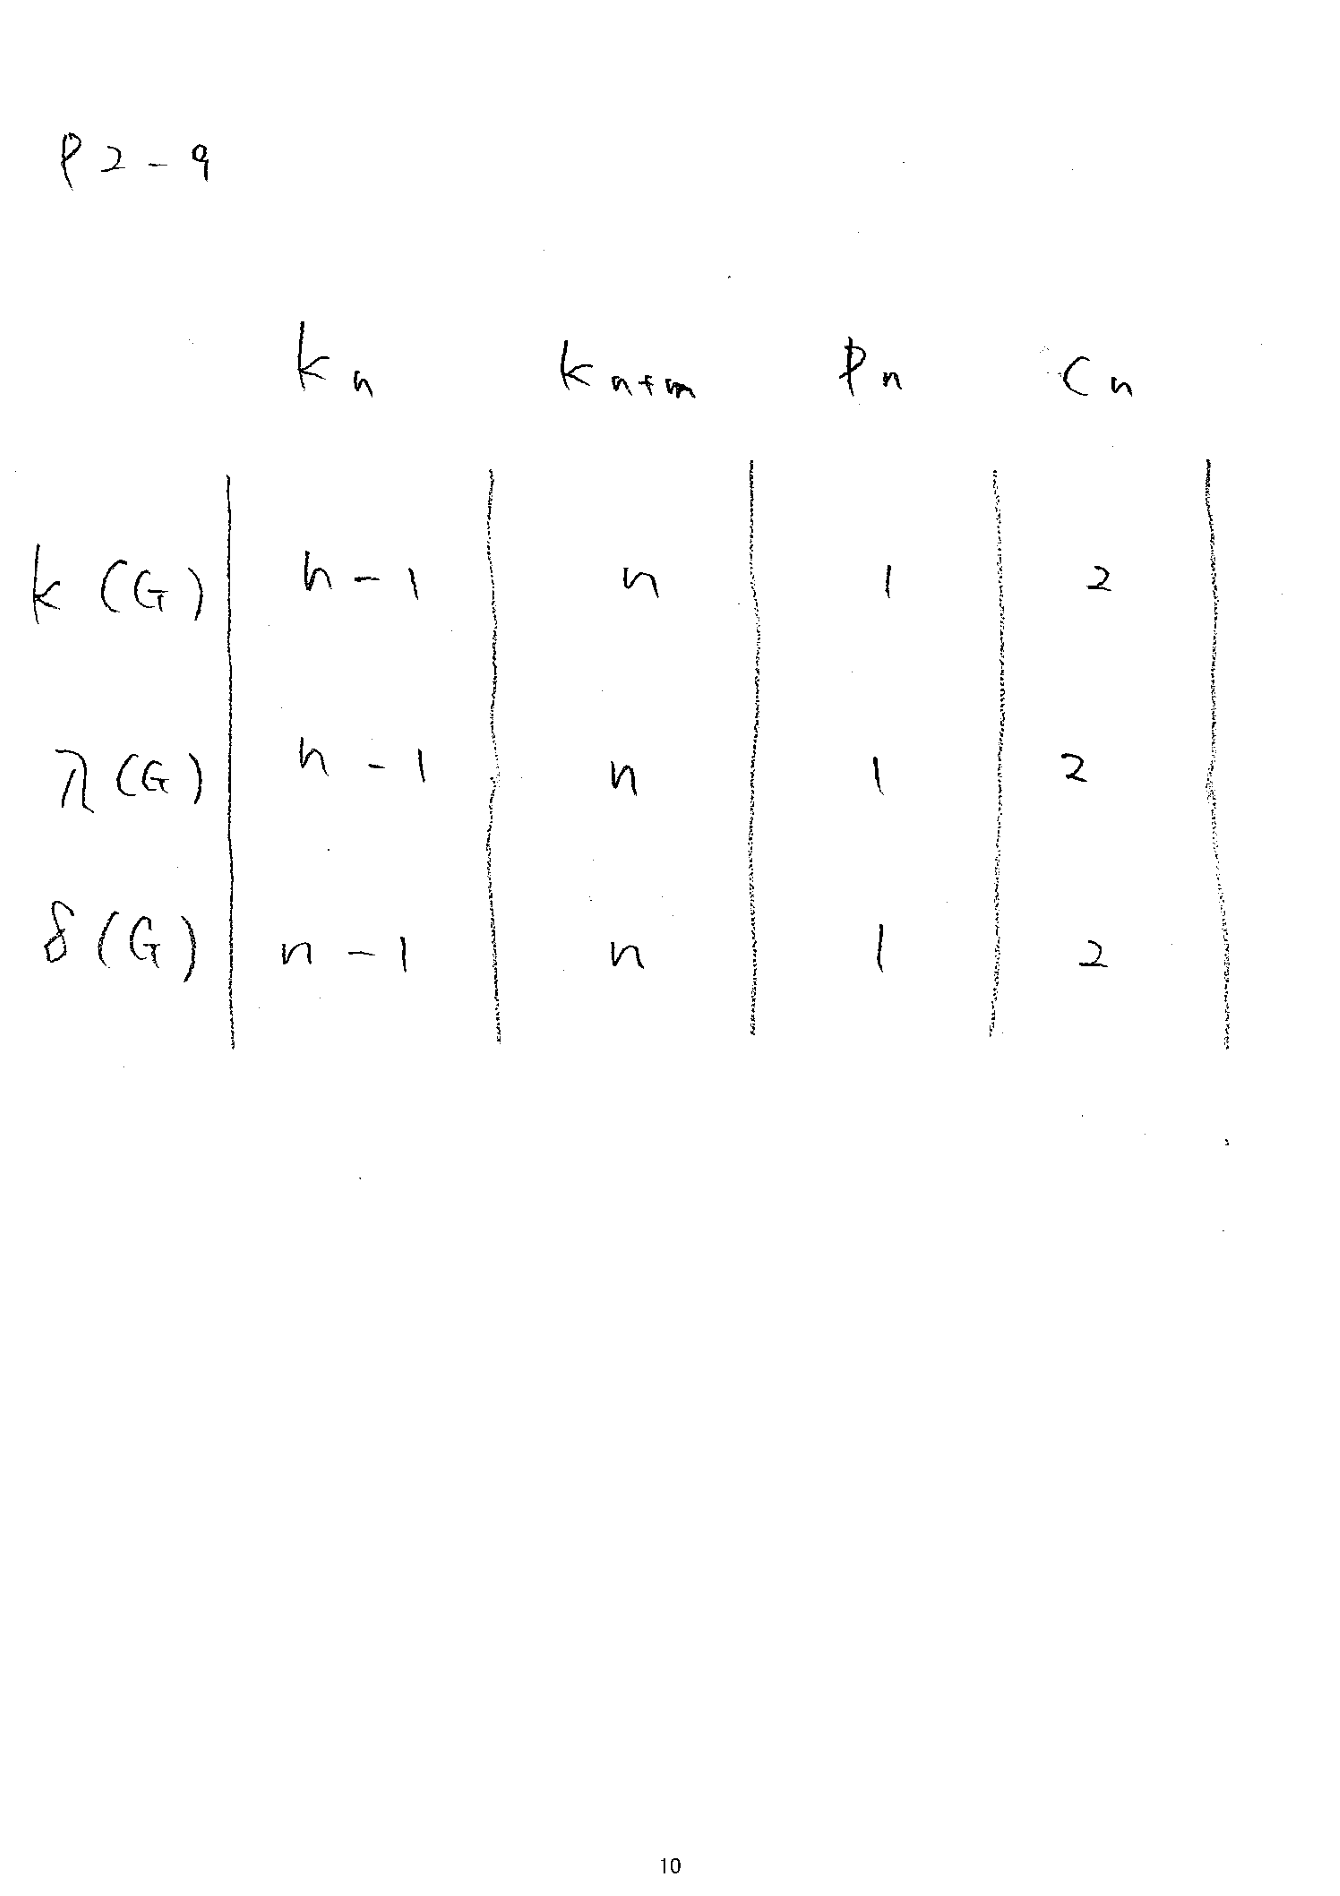 P2-9
Kn Kn+m Pn Cn
k(G) n-1 n 1 2
λ(G) n-1 n 1 2
δ(G) n-1 n 1 2
10